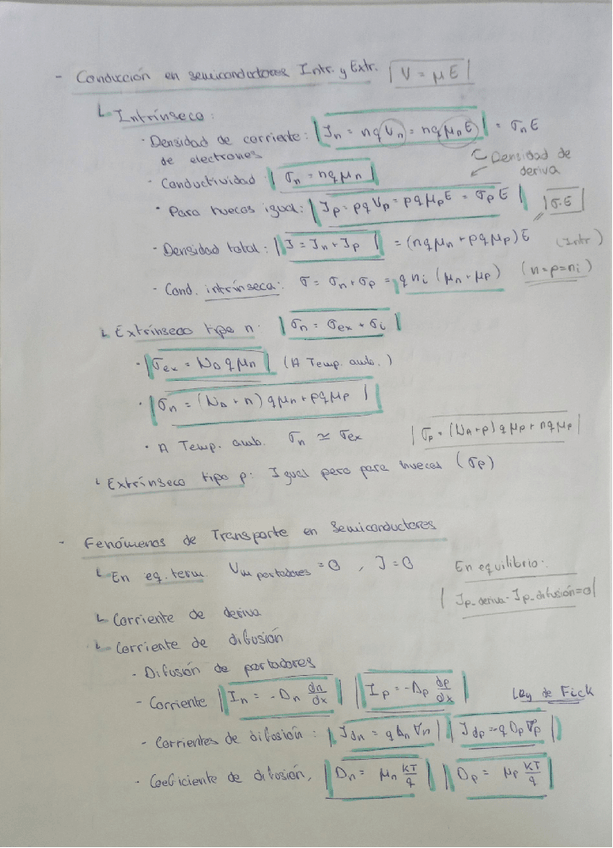 - Conducción en semiconductores Intr. y Extr. | V = μE |
↳ Intrínseco:
· Densidad de corriente: | Jn = nqVn = nqμnE | = σnE
de electrones
← Densidad de
deriva
· Conductividad | σn = nqμn |
· Para huecos igual: | Jp = pqVp = pqμpE = σpE | | σ·E |
· Densidad total: | J = Jn + Jp | = (nqμn + pqμp)E (Intr)
· Cond. intrínseca: σ = σn + σp = qni(μn + μp) (n=p=ni)
↳ Extrínseco tipo n: | σn = σex + σi |
· | σex = NDqμn | (A Temp. amb.)
· | σn = (ND + n)qμn + pqμp |
· A Temp. amb. σn ≃ σex | σp = (NA + p)qμp + nqμn |
↳ Extrínseco tipo p: Igual pero para huecos (σp)
- Fenómenos de Transporte en Semiconductores
↳ En eq. term. Vm portadores = 0 , J = 0 En equilibrio:
| Jp_deriva - Jp_difusión = 0 |
↳ Corriente de deriva
↳ Corriente de difusión
· Difusión de portadores
· Corriente | In = -Dn dn/dx | | Ip = -Dp dp/dx | Ley de Fick
· Corrientes de difusión: | Jdn = qDn∇n | | Jdp = qDp∇p |
· Coeficiente de difusión, | Dn = μn KT/q | | Dp = μp KT/q |